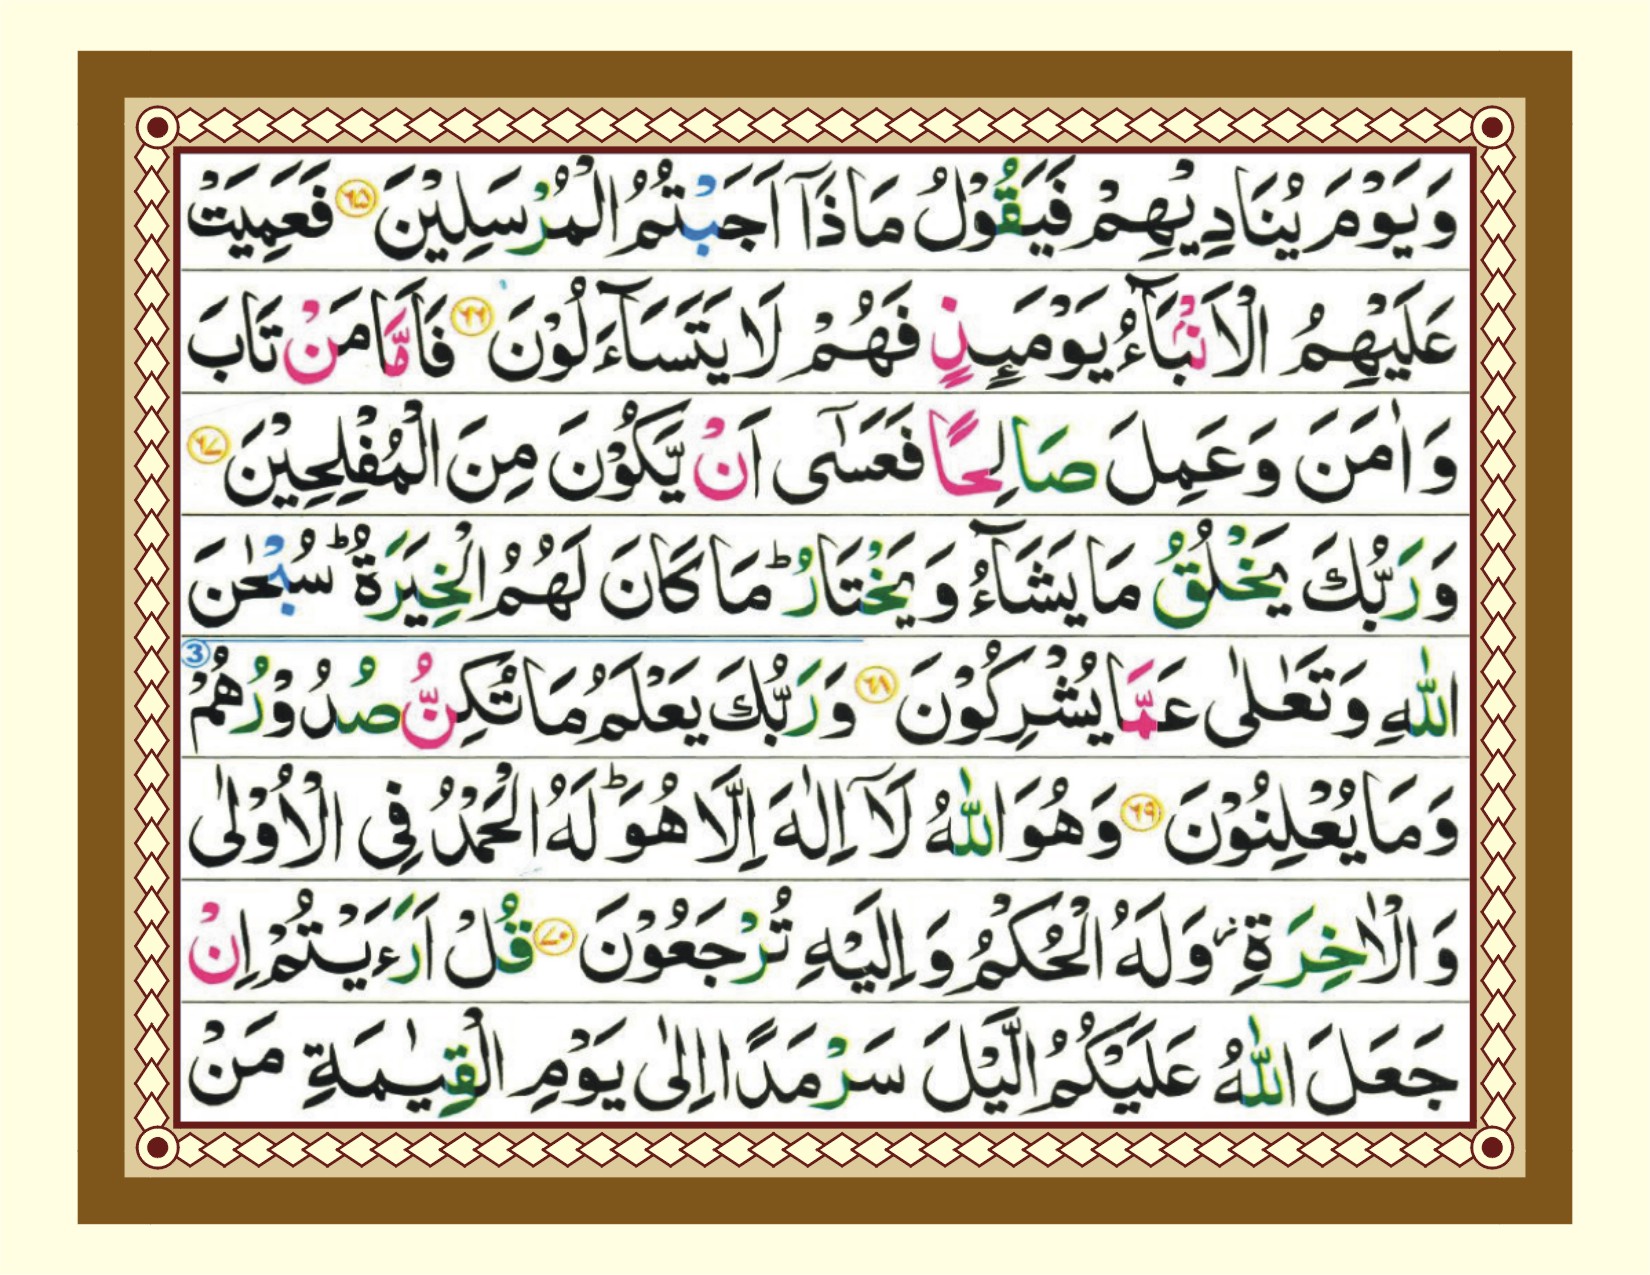 وَيَوْمَ يُنَادِيْهِمْ فَيَقُوْلُ مَاذَآ اَجَبْتُمُ الْمُرْسَلِيْنَ ۶۵ فَعَمِيَتْ
عَلَيْهِمُ الْاَنْۢبَآءُ يَوْمَىِٕذٍ فَهُمْ لَا يَتَسَآءَلُوْنَ ۶۶ فَاَمَّا مَنْ تَابَ
وَاٰمَنَ وَعَمِلَ صَالِحًا فَعَسٰٓى اَنْ يَّكُوْنَ مِنَ الْمُفْلِحِيْنَ ۶۷
وَرَبُّكَ يَخْلُقُ مَا يَشَآءُ وَيَخْتَارُ ؕ مَا كَانَ لَهُمُ الْخِيَرَةُ ؕ سُبْحٰنَ
اللّٰهِ وَتَعٰلٰى عَمَّا يُشْرِكُوْنَ ۶۸ وَرَبُّكَ يَعْلَمُ مَا تُكِنُّ صُدُوْرُهُمْ 3
وَمَا يُعْلِنُوْنَ ۶۹ وَهُوَ اللّٰهُ لَآ اِلٰهَ اِلَّا هُوَ ؕ لَهُ الْحَمْدُ فِى الْاُوْلٰى
وَالْاٰخِرَةِ ز وَلَهُ الْحُكْمُ وَاِلَيْهِ تُرْجَعُوْنَ ۷۰ قُلْ اَرَءَيْتُمْ اِنْ
جَعَلَ اللّٰهُ عَلَيْكُمُ الَّيْلَ سَرْمَدًا اِلٰى يَوْمِ الْقِيٰمَةِ مَنْ